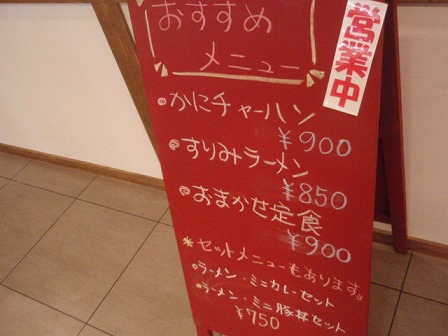 おすすめ
メニュー
営業中
かにチャーハン
¥900
すりみラーメン
¥850
おまかせ定食
¥900
*セットメニューもあります♪
・ラーメン・ミニカレーセット
・ラーメン・ミニ豚丼セット
¥750